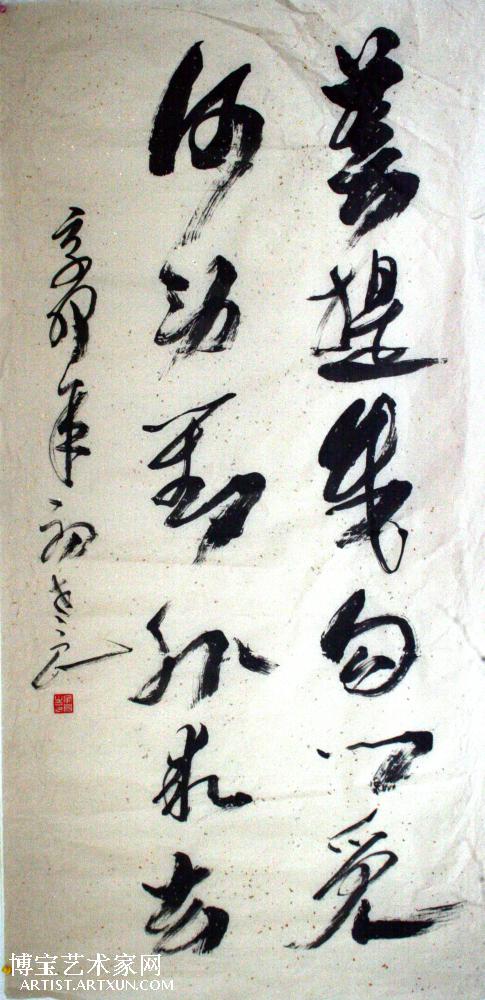 菩提向心觅
何劳外求玄
辛卯年
博宝艺术家网
ARTIST.ARTXUN.COM